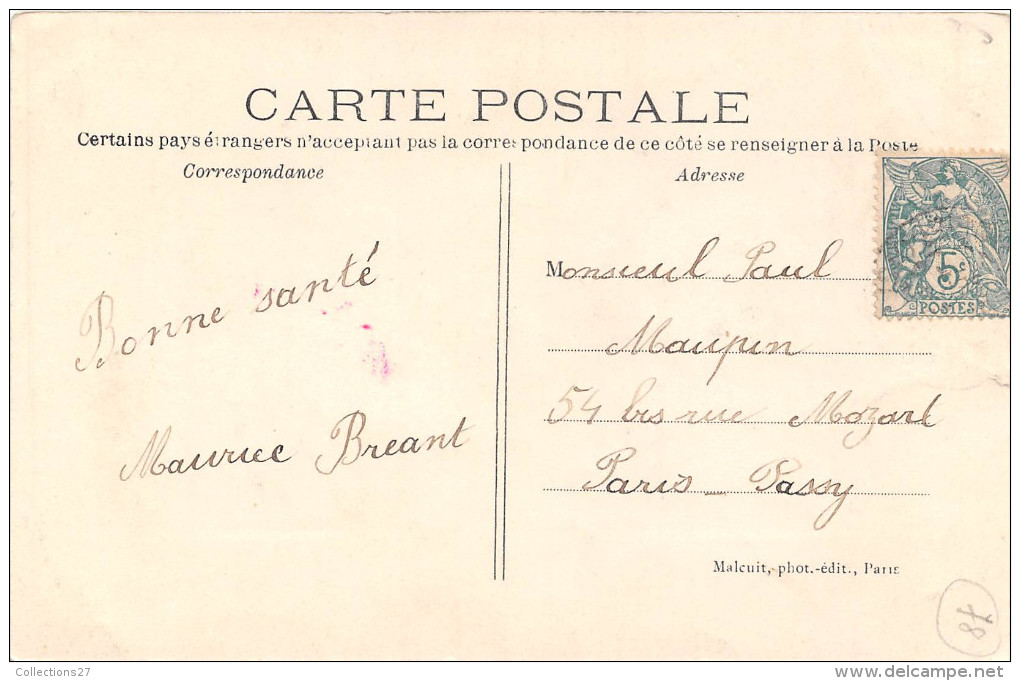 CARTE POSTALE
Certains pays étrangers n'acceptant pas la correspondance de ce côté se renseigner à la Poste
Correspondance
Adresse
Bonne santé
Maurice Breant
Monsieur Paul
Maupin
54 bis rue Mozart
Paris - Passy
5c
POSTES
Malcuit, phot.-édit., Paris
78
Collections27
delcampe.net